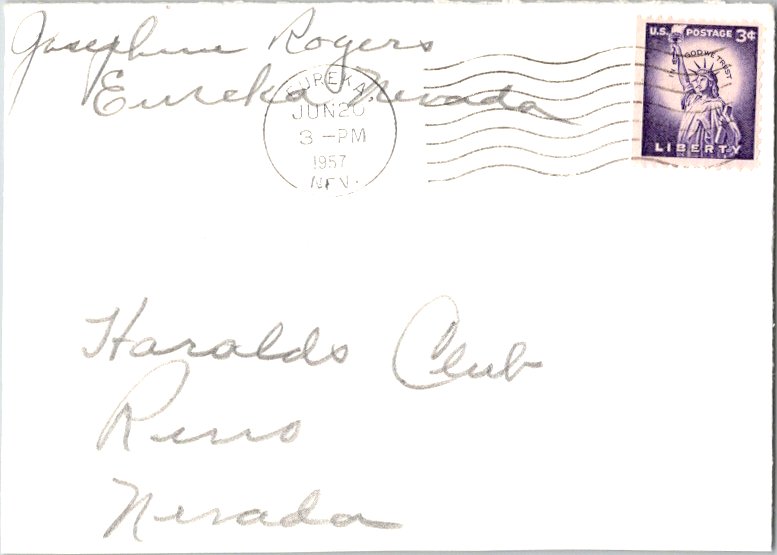 Josephine Rogers
Eureka, Nevada
EUREKA,
JUN 20
3 - PM
1957
NEV.
U.S. POSTAGE 3¢
IN GOD WE TRUST
LIBERTY
Haralds Club
Reno
Nevada